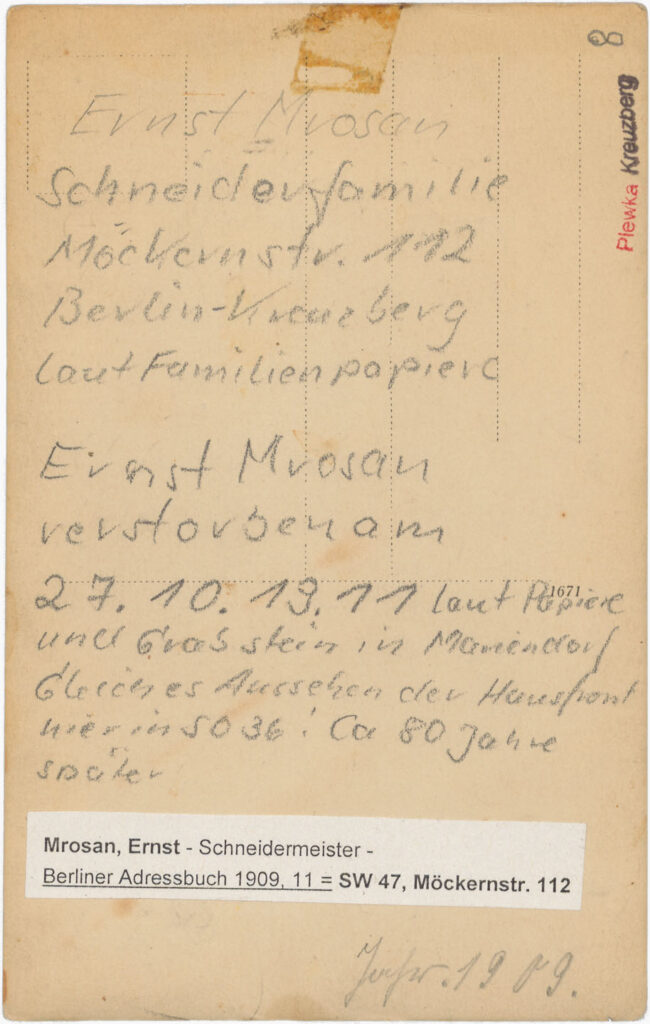 8
Plewka Kreuzberg
Ernst Mrosan
Schneiderfamilie
Möckernstr. 112
Berlin-Kreuzberg
laut Familienpapiere
Ernst Mrosan
verstorben am
27. 10. 19.11 laut Papiere
1671
und Grabstein in Mariendorf
Gleiches Aussehen der Hausfront
hier in SO 36! Ca 80 Jahre
später
Mrosan, Ernst - Schneidermeister -
Berliner Adressbuch 1909, 11 = SW 47, Möckernstr. 112
Jahr. 1909.